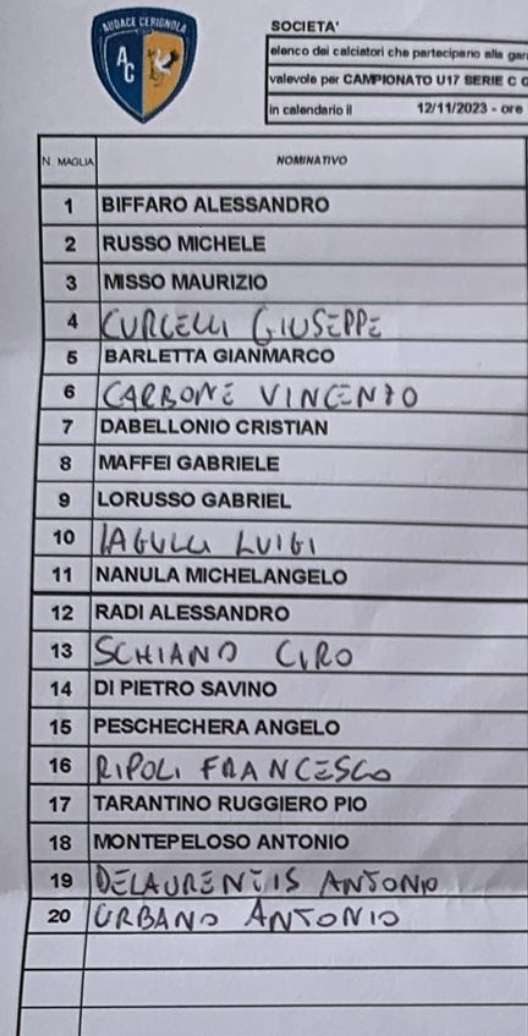 AUDACE CERIGNOLA
AC
SOCIETA'
elenco dei calciatori che partecipano alla
valevole per CAMPIONATO U17 SERIE C
in calendario il 12/11/2023 - ore
N. MAGLIA NOMINATIVO
1 BIFFARO ALESSANDRO
2 RUSSO MICHELE
3 MISSO MAURIZIO
4 CURCELLI GIUSEPPE
5 BARLETTA GIANMARCO
6 CARBONE VINCENZO
7 DABELLONIO CRISTIAN
8 MAFFEI GABRIELE
9 LORUSSO GABRIEL
10 IAGULLI LUIGI
11 NANULA MICHELANGELO
12 RADI ALESSANDRO
13 SCHIANO CIRO
14 DI PIETRO SAVINO
15 PESCHECHERA ANGELO
16 RIPOLI FRANCESCO
17 TARANTINO RUGGIERO PIO
18 MONTEPELOSO ANTONIO
19 DELAURENTIS ANTONIO
20 URBANO ANTONIO